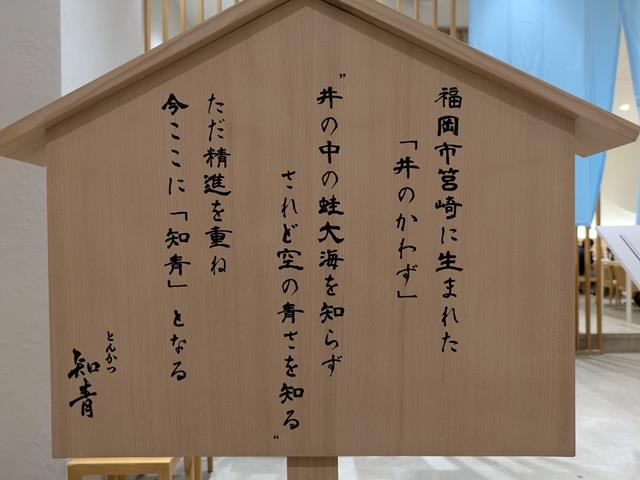 福岡市筥崎に生まれた
「井のかわず」
"井の中の蛙大海を知らず
されど空の青さを知る"
ただ精進を重ね
今ここに「知青」となる
とんかつ
知青